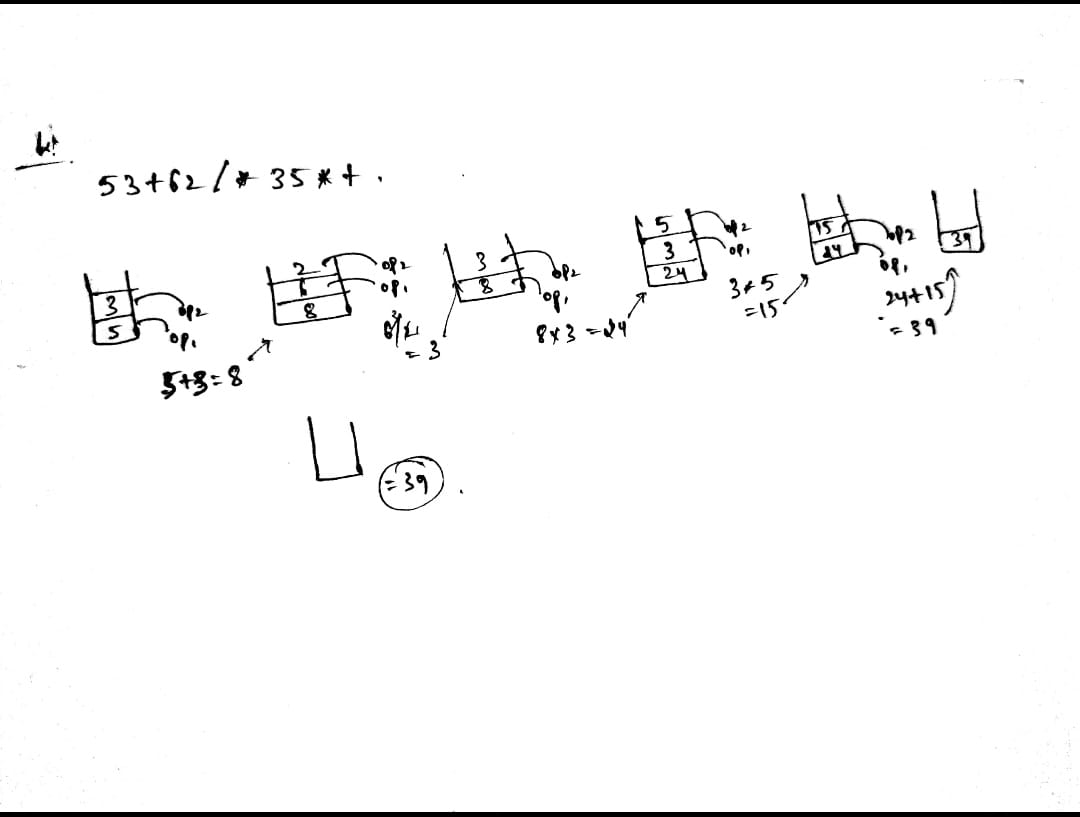 53+62/* 35*+.
3
5
op2
op1
5+3=8
2
6
8
op2
op1
6/2
= 3
3
8
op2
op1
8x3 = 24
5
3
24
op2
op1
3*5
=15
15
24
op2
op1
24+15
= 39
39
= 39